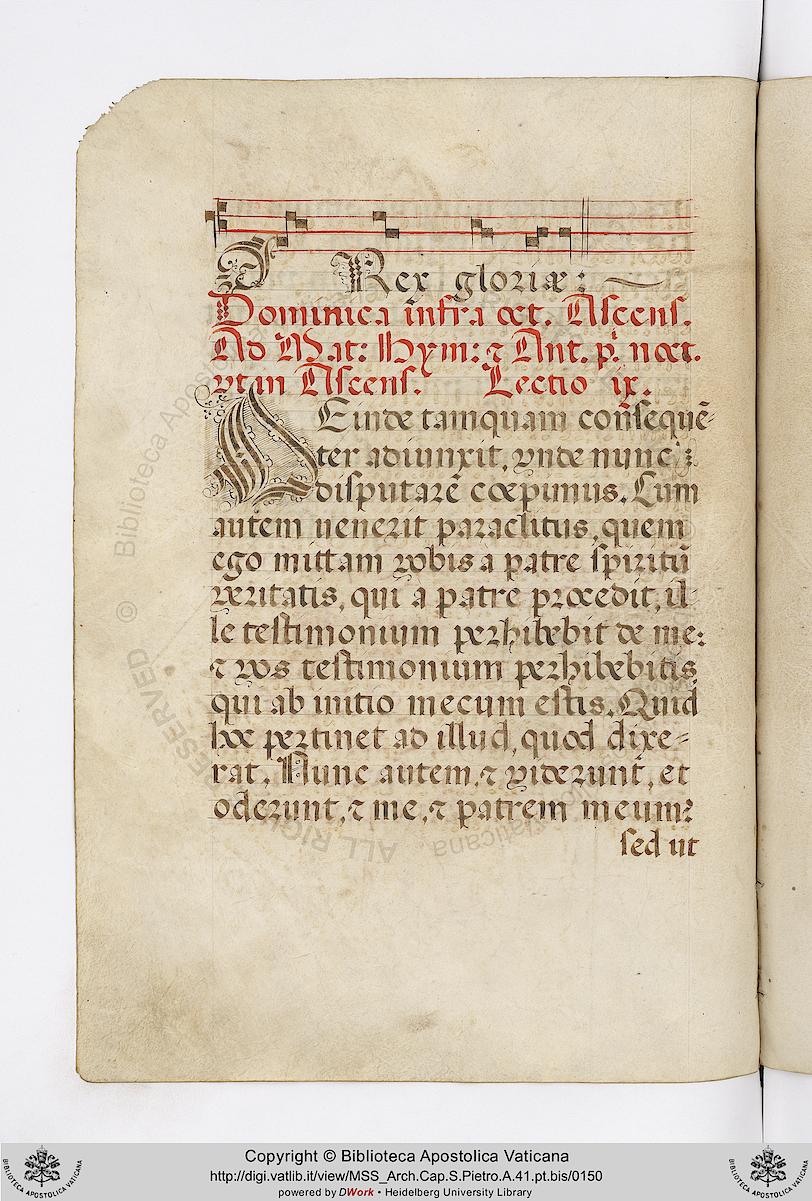 O Rex gloriæ:
Dominica infra oct. Ascens.
Ad Mat: Hym: ⁊ Ant. p. noct.
vt in Ascens. Lectio ix.
DEinde tamquam consequē-
ter adiunxit, vnde nunc
disputare cœpimus. Cum
autem uenerit paraclitus, quem
ego mittam vobis a patre spiritū
veritatis, qui a patre procedit, il-
le testimonium perhibebit de me:
⁊ vos testimonium perhibebitis,
qui ab initio mecum estis. Quid
hoc pertinet ad illud, quod dixe-
rat. Nunc autem, ⁊ viderunt, et
oderunt, ⁊ me, ⁊ patrem meum:
sed ut
© Biblioteca Apostolica Vaticana
ALL RIGHTS RESERVED
BIBLIOTECA APOSTOLICA VATICANA
Copyright © Biblioteca Apostolica Vaticana
http://digi.vatlib.it/view/MSS_Arch.Cap.S.Pietro.A.41.pt.bis/0150
powered by DWork • Heidelberg University Library
BIBLIOTECA APOSTOLICA VATICANA